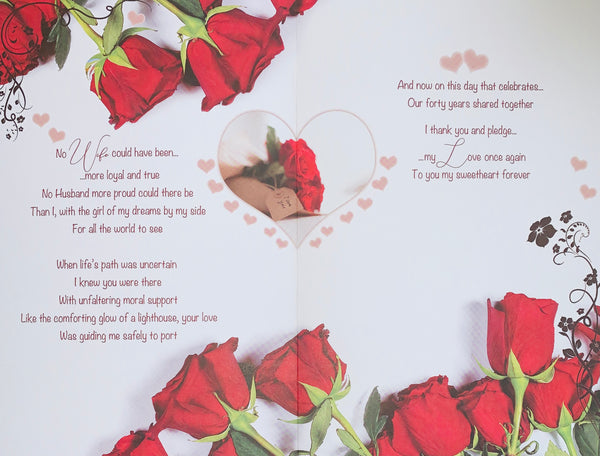 No Wife could have been...
...more loyal and true
No Husband more proud could there be
Than I, with the girl of my dreams by my side
For all the world to see
When life's path was uncertain
I knew you were there
With unfaltering moral support
Like the comforting glow of a lighthouse, your love
Was guiding me safely to port
And now on this day that celebrates...
Our forty years shared together
I thank you and pledge...
...my Love once again
To you my sweetheart forever